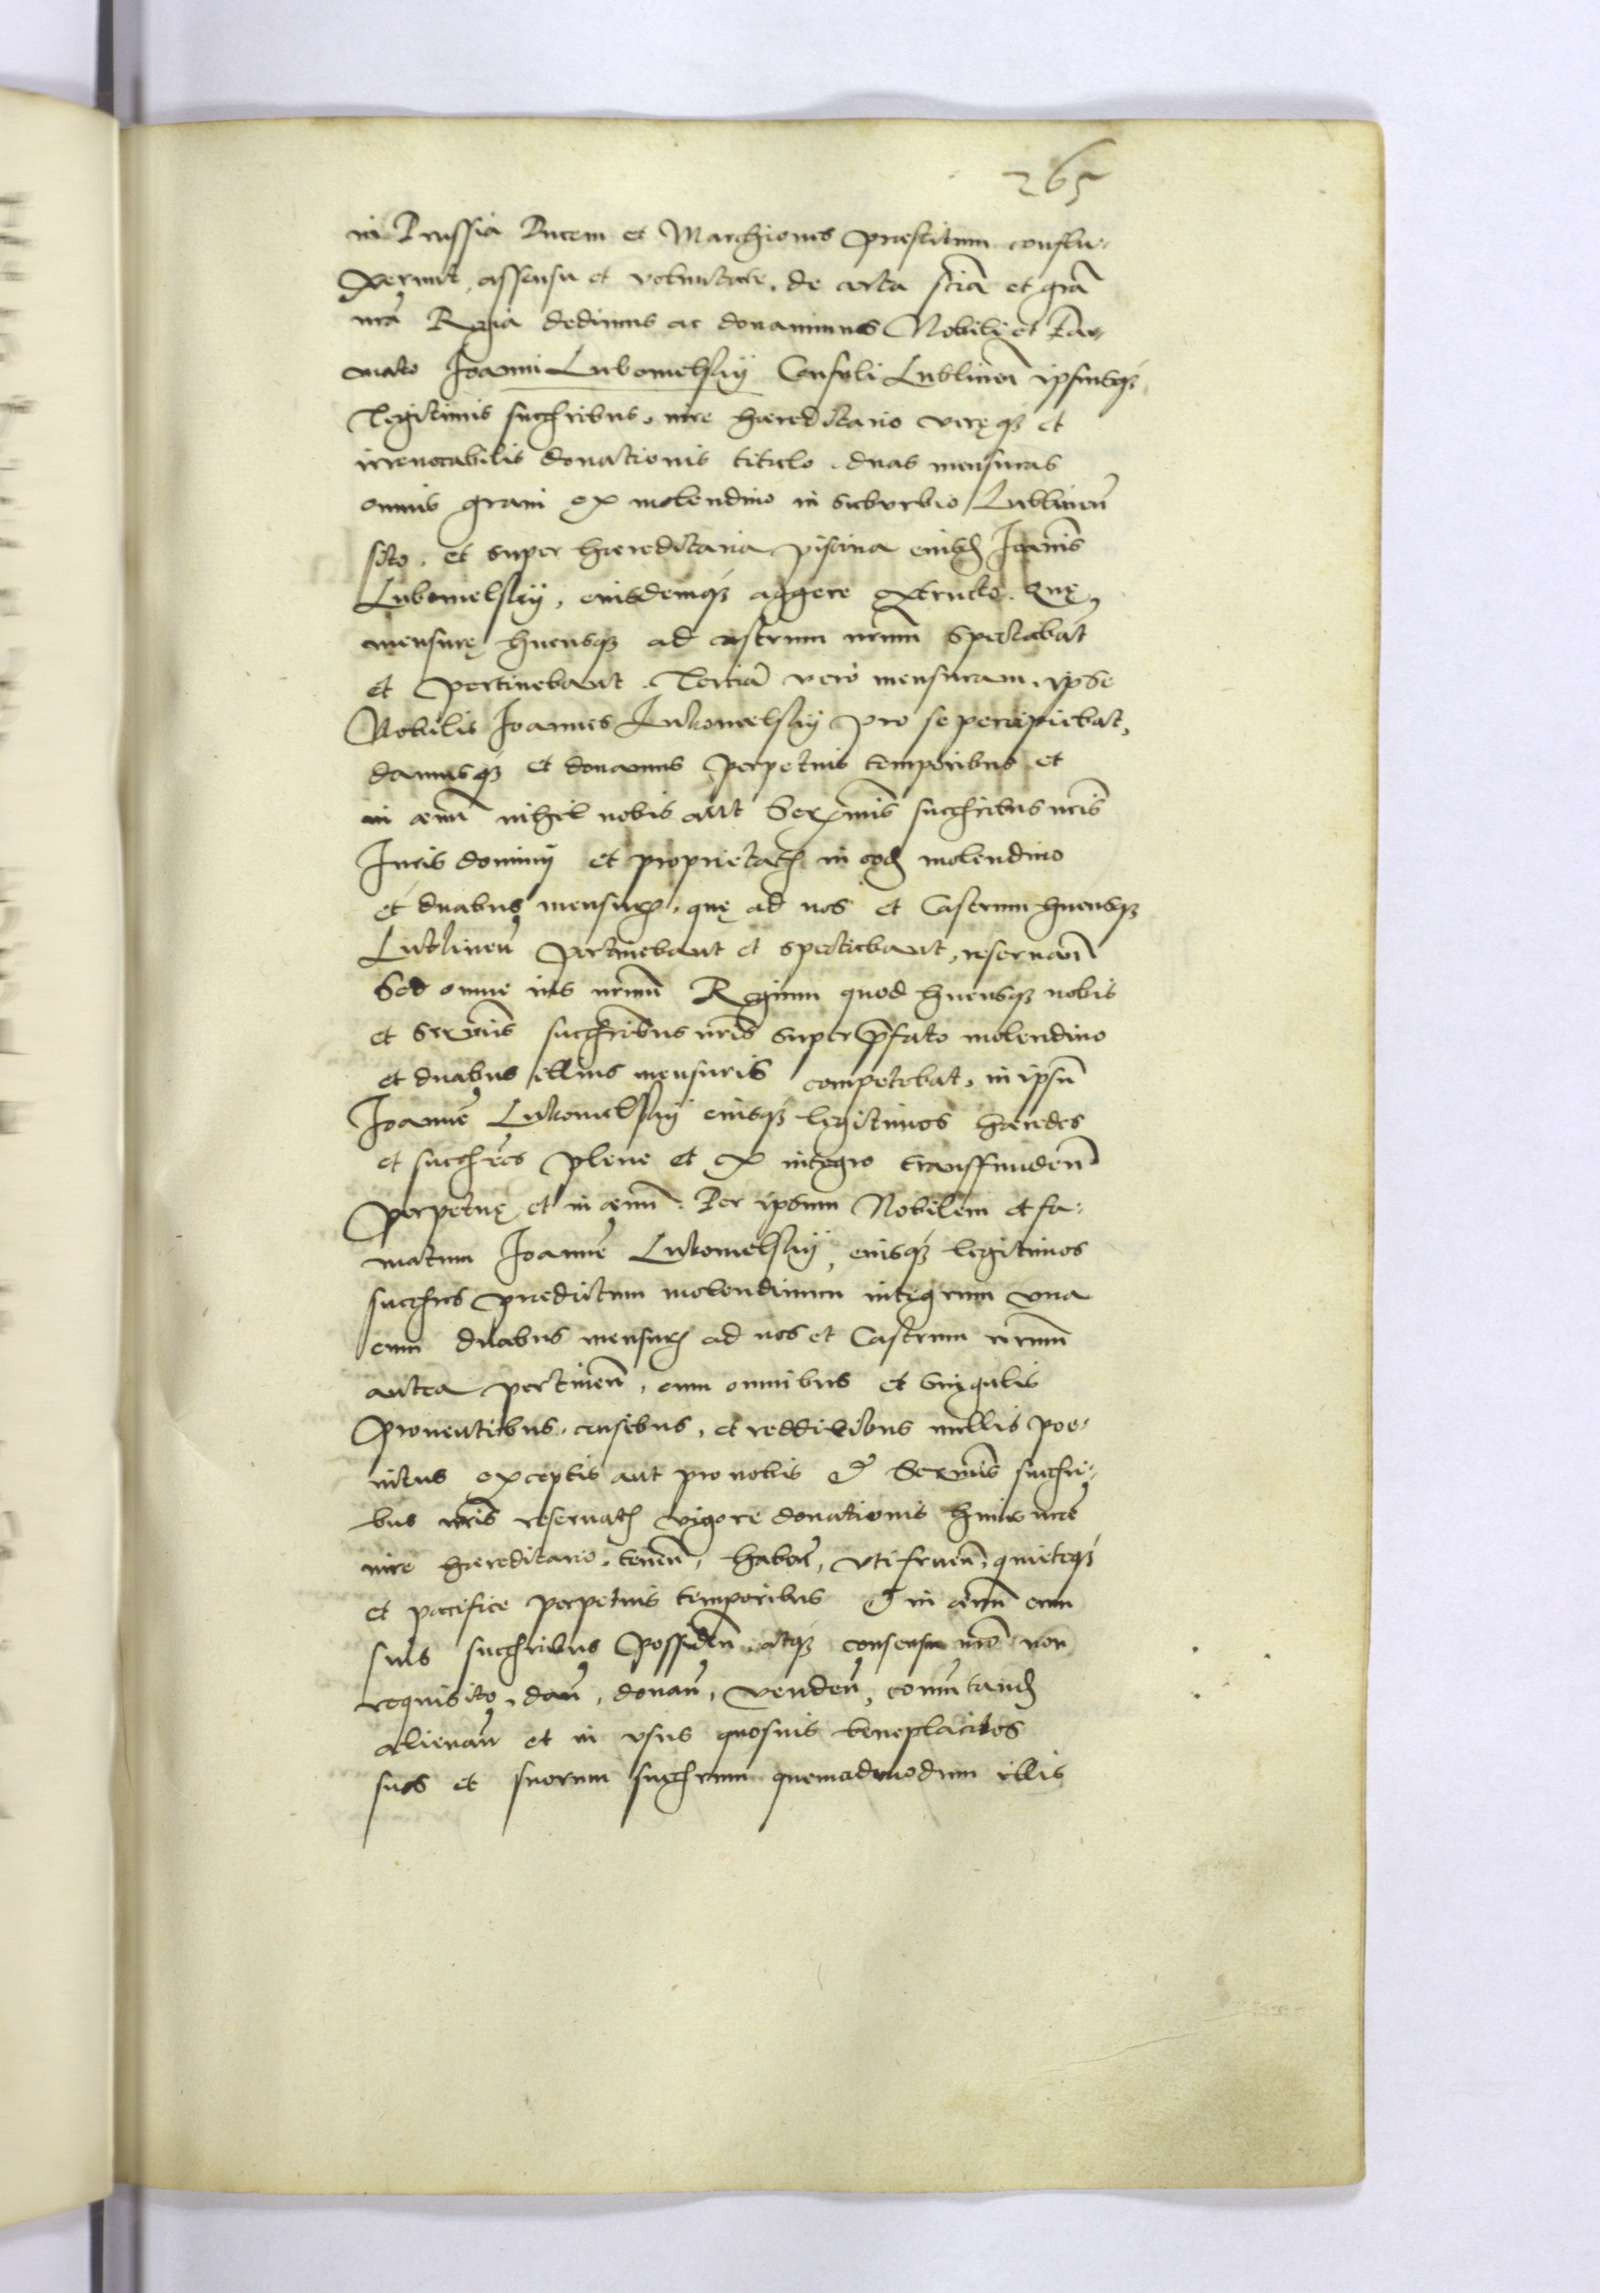 265
in Prussia Ducem et Marchionis præstitum conflu-
xerunt, assensu et voluntate, de certa sciã et grã
nrã Regia dedimus ac donavimus Nobili et Fa-
mato Joanni Lubomelskij Consuli Lublineñ ipsiusq₃
legitimis succrĩbus, iure hæreditario veręq₃ et
irrevocabilis donationis titulo, duas mensuras
omnis grani ex molendino in Suburbio Lublineñ
sito, et super hæreditaria piscina eiusd Joannis
Lubomelskij, eiusdemq₃ aggere extructo. Quę
mensurę hucusq₃ ad castrum nrũm spectabãt
et pertinebant. Terciã vero mensuram, ipse
Nobilis Joannes Lubomelskij pro se percipiebat,
damusq₃ et donamus perpetuis temporibus et
in ævũ nihil nobis aut Serẽmis succrĩbus nrĩs
Juris dominij et proprietatẽ in eod molendino
et duabus mensurẽ, quę ad nos et Castrum hucusq₃
Lublineñ pertinebant et spectabant, reservañ
Sed omne ius nrũm Regium quod hucusq₃ nobis
et Serẽmis succrĩbus nrĩs super p̃fato molendino
et duabus illius mensuris competebat, in ipsũ
Joannẽ Lubomelskij eiusq₃ legitimos hæredes
et succrẽs plene et ex integro transfundeñ
perpetuę et in ævũ. Per ipsum Nobilem et fa-
matum Joannẽ Lubomelskij, eiusq₃ legitimos
succrẽs prædictum molendinum integrum una
cum duabus mensurẽ ad nos et Castrum nrũm
antea pertineñ, cum omnibus et singulis
proventibus, censibus, et redditibus nullis poe-
nitus exceptis aut pro nobis et Serẽmis succri-
bus nrĩs reservatẽ vigore donationis huius nrẽ
iure hæreditario, teneñ, habeñ, utifrueñ, quieteq₃
et pacifice perpetuis temporibus et in ævũ cum
suis succrĩbus possideñ, atq₃ consensu nrõ non
requisito, dañ, donañ, vendeñ, comutand
alienañ et in usus quosvis beneplacitos
suos et suorum succrum quemadmodum illis